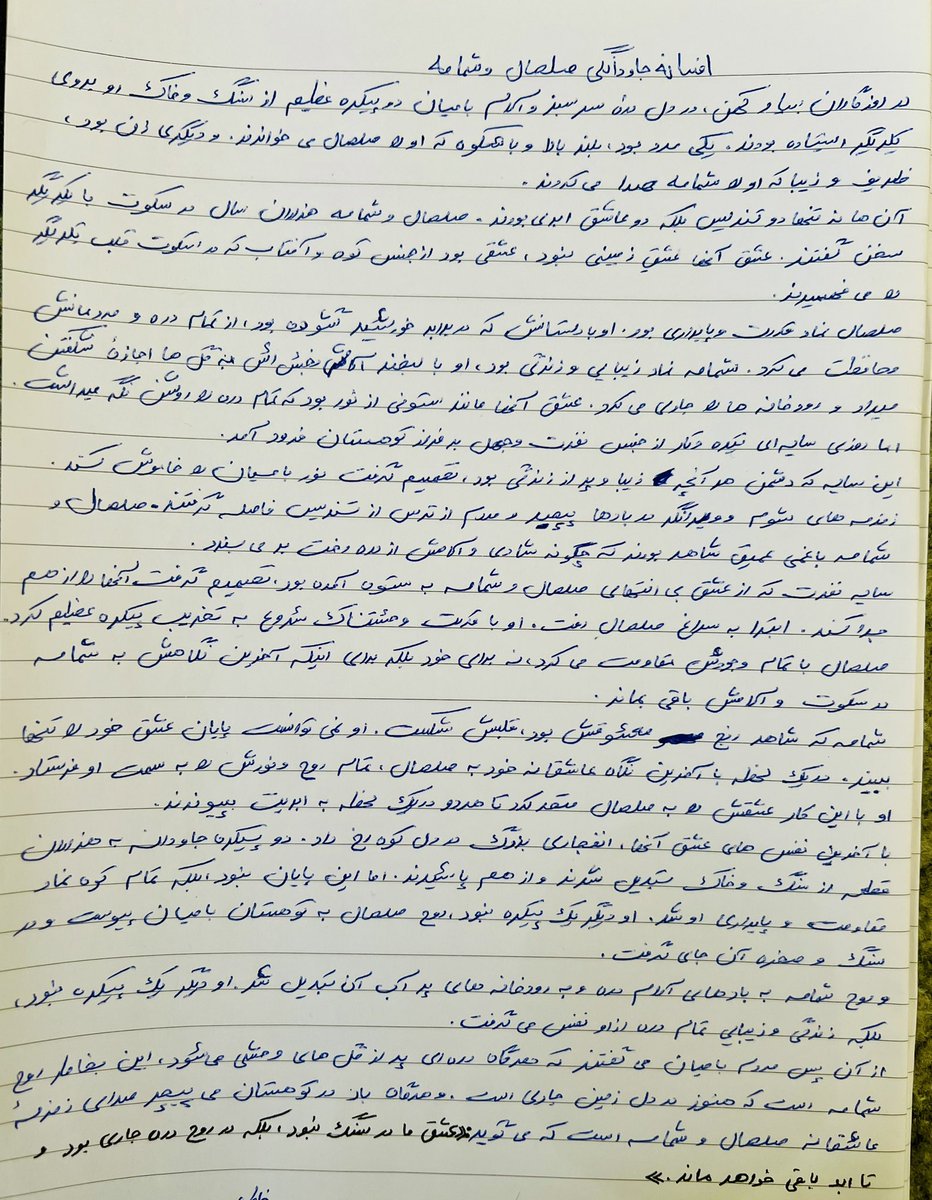 افسانه جاودانگی صلصال و شمامه
در روزگاران زیبا و کهن، در دل درهٔ سرسبز و آرام بامیان دو پیکره عظیم از سنگ و خاک رو بروی
یکدیگر ایستاده بودند. یکی مرد بود، بلند بالا و با شکوه که او را صلصال می خواندند. و دیگری زن بود،
ظریف و زیبا که او را شمامه صدا می کردند.
آن ها نه تنها دو تندیس بلکه دو عاشق ابدی بودند. صلصال و شمامه هزاران سال در سکوت با یکدیگر
سخن گفتند. عشق آنها عشق زمینی نبود، عشقی بود از جنس کوه و آفتاب که در سکوت قلب یکدیگر
را می فهمیدند.
صلصال نماد قدرت و پایداری بود. او با دستانش که در برابر خورشید گشوده بود، از تمام دره و مردمانش
محافظت می کرد. شمامه نماد زیبایی و زندگی بود، او با لبخند آرامش بخش اش به گل ها اجازهٔ شگفتن
میداد و رودخانه ها را جاری می کرد. عشق آنها مانند ستونی از نور بود که تمام دره را روشن نگه میداشت.
اما روزی سایه ای تیره و تار از جنس نفرت و جهل بر فراز کوهستان فرود آمد.
این سایه که دشمن هر آنچه زیبا و پر از زندگی بود، تصمیم گرفت نور بامیان را خاموش کند.
زمزمه های شوم و ویرانگر در بادها پیچید و مردم از ترس از تندیس فاصله گرفتند. صلصال و
شمامه با غمی عمیق شاهد بودند که چگونه شادی و آرامش از دره رخت بر می بندد.
سایه نفرت که از عشق بی انتهای صلصال و شمامه به ستوه آمده بود، تصمیم گرفت آنها را از هم
جدا کند. ابتدا به سراغ صلصال رفت. او با قدرت وحشتناک شروع به تخریب پیکره عظیم کرد.
صلصال با تمام وجودش مقاومت می کرد، نه برای خود بلکه برای اینکه آخرین نگاهش به شمامه
در سکوت و آرامش باقی بماند.
شمامه که شاهد رنج معشوقش بود، قلبش شکست. او نمی توانست پایان عشق خود را تنها
ببیند. در یک لحظه با آخرین نگاه عاشقانه خود به صلصال، تمام روح و نورش را به سمت او فرستاد.
او با این کار عشقش را به صلصال متحد کرد تا هردو در یک لحظه به ابدیت بپیوندند.
با آخرین نفس های عشق آنها، انفجاری بزرگ در دل کوه رخ داد. دو پیکره جاودانه به هزاران
قطعه از سنگ و خاک تبدیل شدند و از هم پاشیدند. اما این پایان نبود، بلکه تمام کوه نماد
مقاومت و پایداری او شد. او دیگر یک پیکره نبود، روح صلصال به کوهستان بامیان پیوست و در
سنگ و صخره آن جای گرفت.
و روح شمامه به بادهای آرام دره و به رودخانه های پر آب آن تبدیل شد. او دیگر یک پیکره نبود،
بلکه زندگی و زیبایی تمام دره از او نفس می گرفت.
از آن پس مردم بامیان می گفتند که هرگاه دره ای پر از گل های وحشی می شود، این بخاطر روح
شمامه است که هنوز در دل زمین جاری است. و هرگاه باد در کوهستان می پیچد صدای زمزمهٔ
عاشقانه صلصال و شمامه است که می گوید: «عشق ما در سنگ نبود، بلکه در روح دره جاری بود و
تا ابد باقی خواهد ماند.»